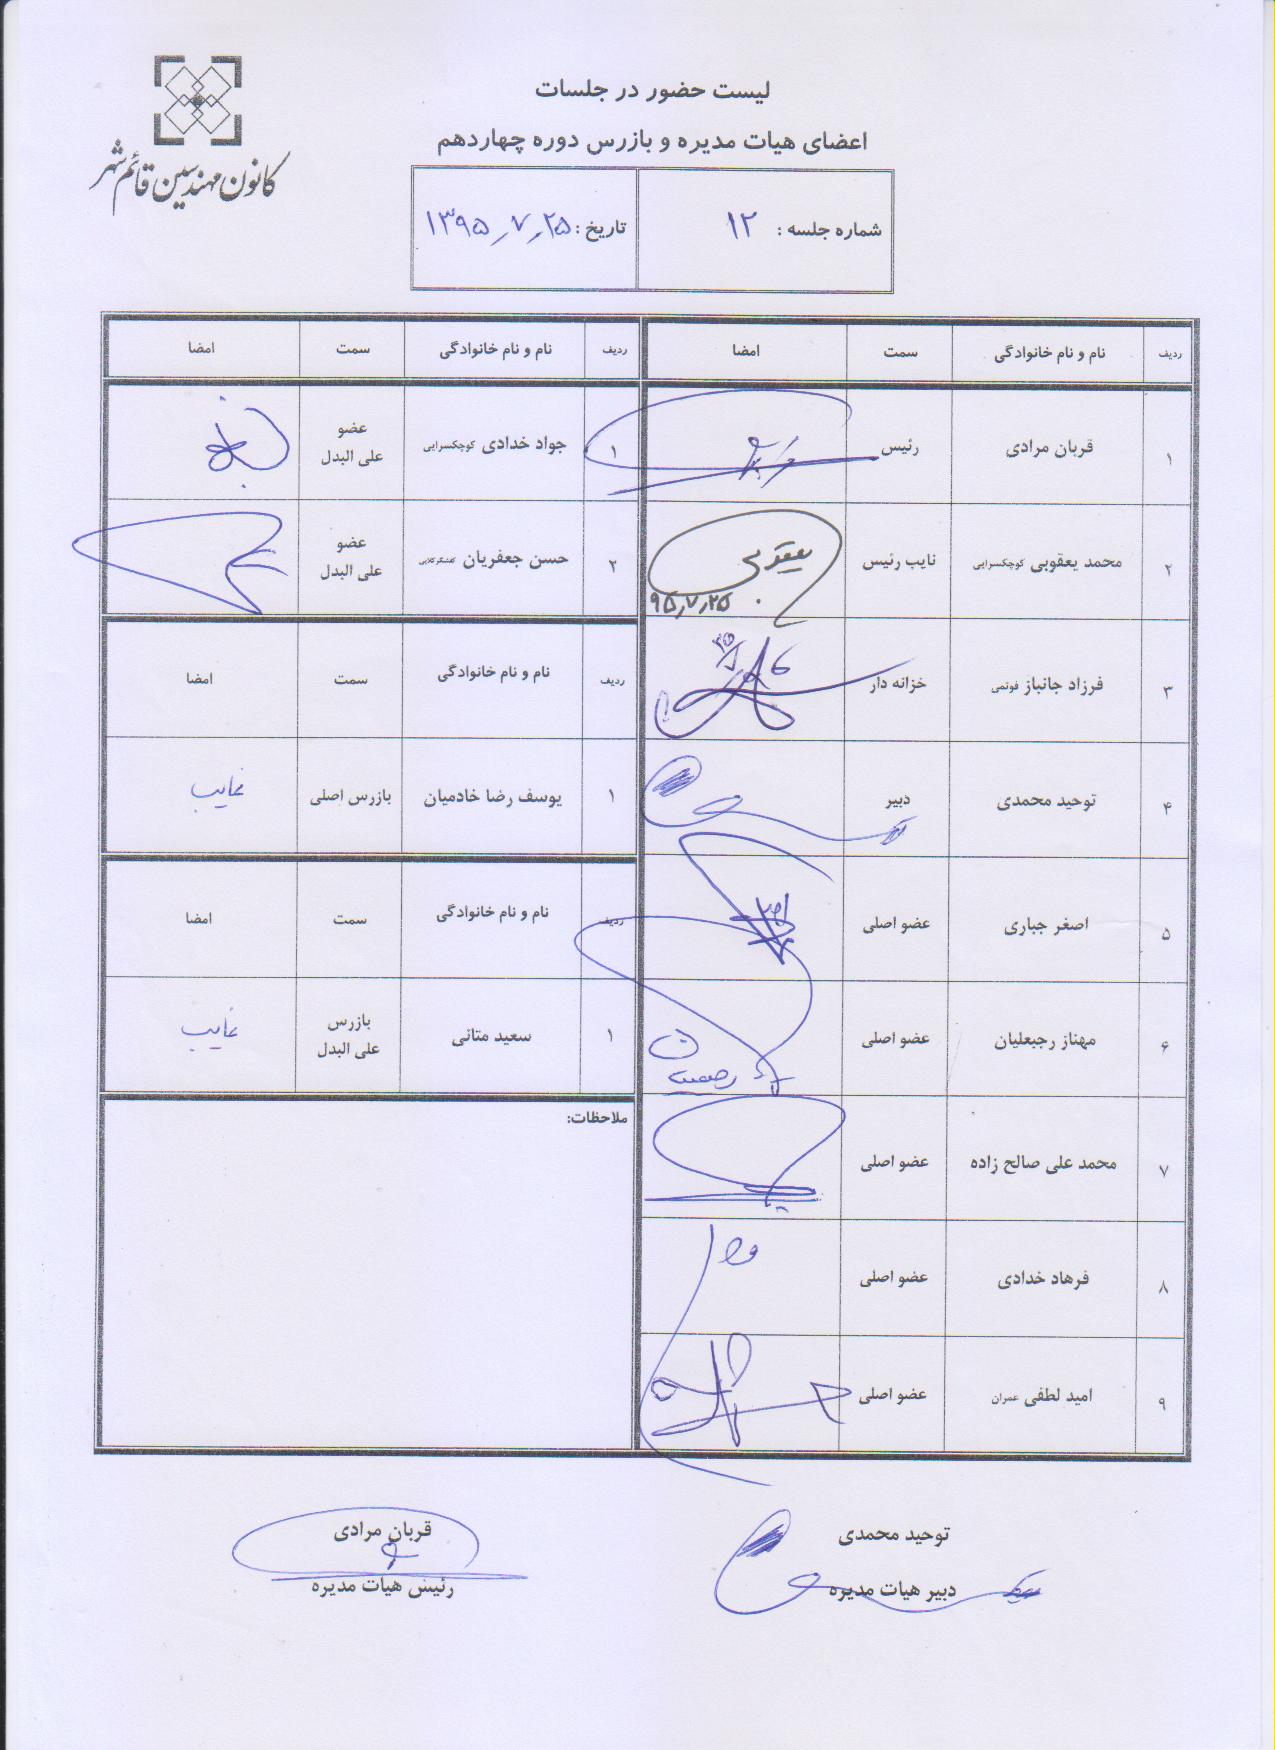 کانون مهندسین قائم شهر
لیست حضور در جلسات
اعضای هیات مدیره و بازرس دوره چهاردهم
شماره جلسه : ۱۲
تاریخ : ۱۳۹۵٫۷٫۲۵
ردیف نام و نام خانوادگی سمت امضا
۱ قربان مرادی رئیس
۲ محمد یعقوبی کوچکسرایی نایب رئیس یعقوبی
۹۵٫۷٫۲۵
۳ فرزاد جانباز فوتمی خزانه دار
۴ توحید محمدی دبیر
۵ اصغر جباری عضو اصلی
۶ مهناز رجبعلیان عضو اصلی
۷ محمد علی صالح زاده عضو اصلی
۸ فرهاد خدادی عضو اصلی
۹ امید لطفی عمران عضو اصلی
ردیف نام و نام خانوادگی سمت امضا
۱ جواد خدادی کوچکسرایی عضو
علی البدل
۲ حسن جعفریان عضو
علی البدل
ردیف نام و نام خانوادگی سمت امضا
۱ یوسف رضا خادمیان بازرس اصلی غایب
ردیف نام و نام خانوادگی سمت امضا
۱ سعید متانی بازرس
علی البدل غایب
ملاحظات:
توحید محمدی
دبیر هیات مدیره
قربان مرادی
رئیس هیات مدیره